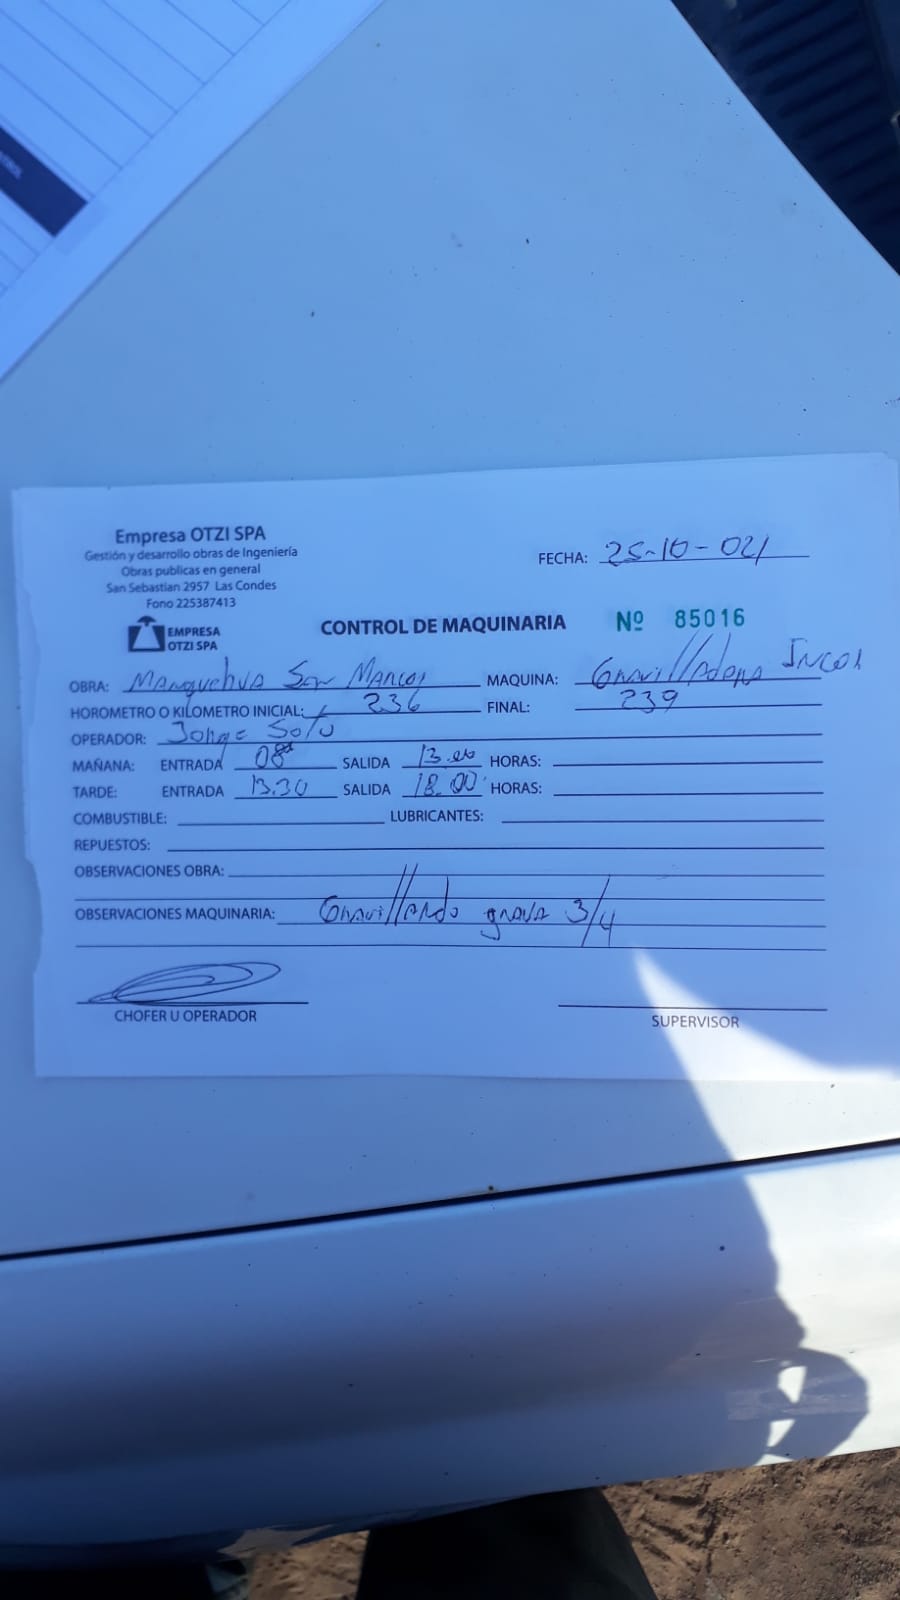 Empresa OTZI SPA
Gestión y desarrollo obras de Ingeniería
Obras publicas en general
San Sebastian 2957 Las Condes
Fono 225387413
EMPRESA
OTZI SPA
FECHA: 25-10-021
CONTROL DE MAQUINARIA Nº 85016
OBRA: Manquehua San Marcos MAQUINA: Gravilladora
HOROMETRO O KILOMETRO INICIAL: 236 FINAL: 239
OPERADOR: Jorge Soto
MAÑANA: ENTRADA 08 SALIDA 13.00 HORAS:
TARDE: ENTRADA 13.30 SALIDA 18.00 HORAS:
COMBUSTIBLE: LUBRICANTES:
REPUESTOS:
OBSERVACIONES OBRA:
OBSERVACIONES MAQUINARIA: Gravillando grava 3/4
CHOFER U OPERADOR
SUPERVISOR